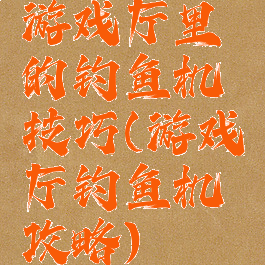 游戏厅里
的钓鱼机
技巧(游戏
厅钓鱼机
攻略)